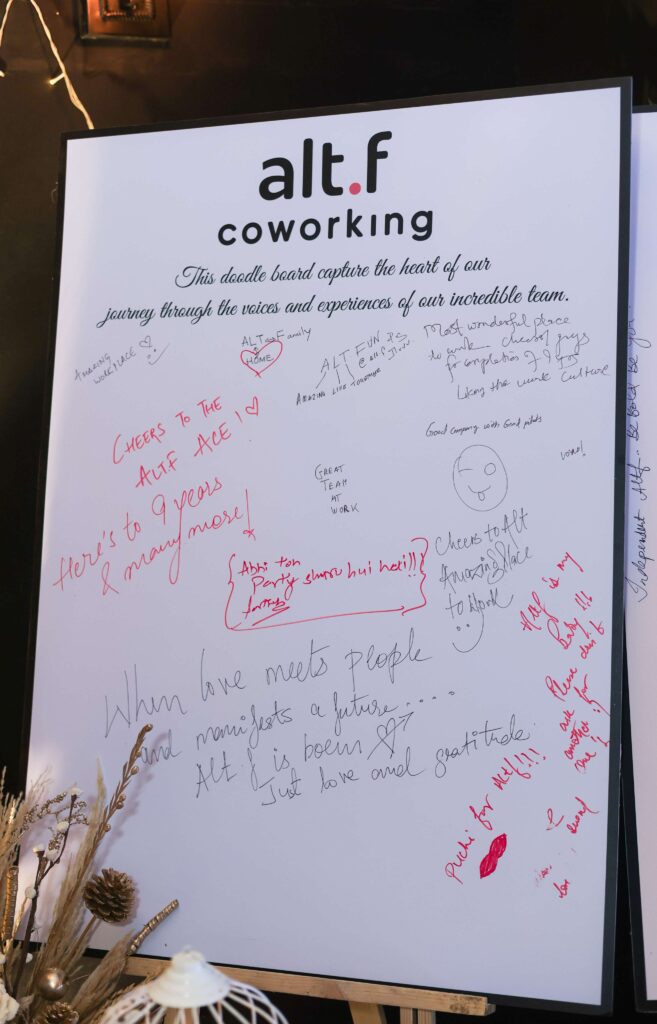 alt.f
coworking
This doodle board capture the heart of our
journey through the voices and experiences of our incredible team.
AMAZING
WORKPLACE
Family
HOME
ALT FUN
AMAZING LIFE TOGETHER
Most wonderful place
to work cheerful guys
for completion
Liking the work culture
CHEERS TO THE
ALTF ACE !
Here's to 9 years
& many more!
GREAT
TEAM
AT
WORK
Good company with Good pilots
Abhi toh
Party shuru hui hai!!
Cheers to Alt
Amazing Place
to Work
When love meets people
and manifests a future....
Alt.f is born
Just love and gratitude.
Altf is my
baby !!!
Please don't
ask for
another
one
Puchi for Altf!!!
Independent Altf.. Be Bold Be you